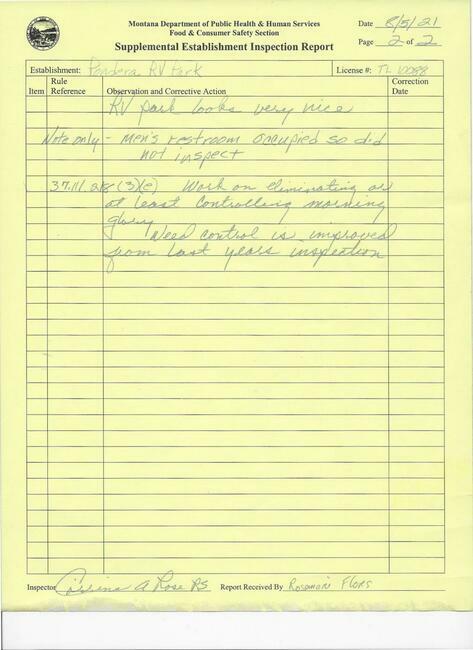 Montana Department of Public Health & Human Services
Food & Consumer Safety Section
Supplemental Establishment Inspection Report
Date 8/5/21
Page 2 of 2
Establishment: Pondera RV Park License #: TL 10088
Item Rule Reference Observation and Corrective Action Correction Date
RV park looks very nice
Note only - Men's restroom occupied so did
not inspect
37.111.218(3)(e) Work on eliminating or
at least controlling morning
glory
Weed control is improved
from last years inspection
Inspector A Rose RS Report Received By Rosemari Flors